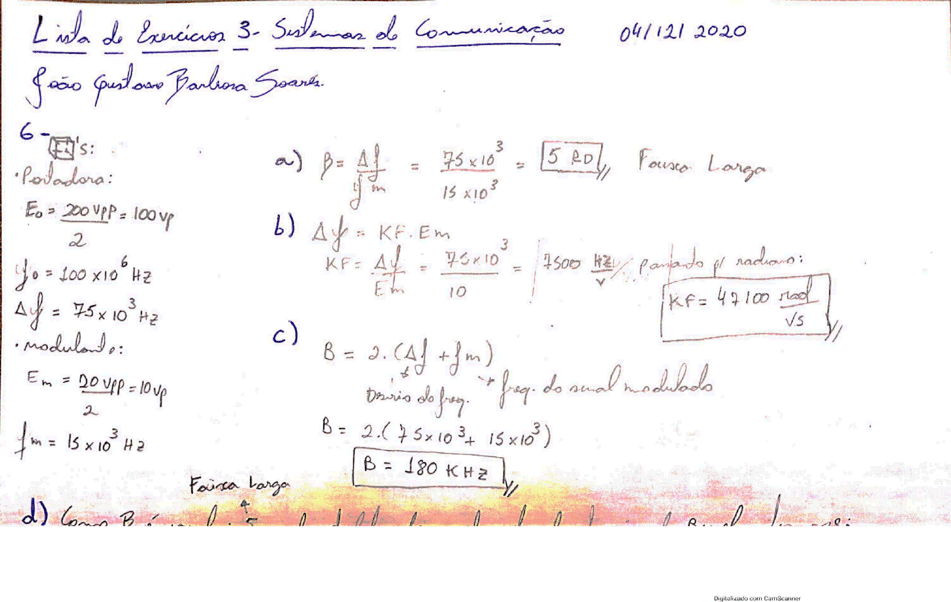 Lista de Exercícios 3 - Sistemas de Comunicação 04/12/2020
João Gustavo Barbosa Soares.
6 -
's:
• Portadora:
E₀ = 200 Vpp / 2 = 100 Vp
f₀ = 100 x 10⁶ Hz
Δf = 75 x 10³ Hz
• modulante:
Em = 20 Vpp / 2 = 10 Vp
fm = 15 x 10³ Hz
a) β = Δf / fm = 75 x 10³ / 15 x 10³ = 5 RD // Faixa Larga
b) Δf = KF . Em
KF = Δf / Em = 75 x 10³ / 10 = 7500 Hz / V // passando p/ radiano:
KF = 47100 rad / Vs //
c)
B = 2. (Δf + fm)
Desvio de freq. → freq. do sinal modulado
B = 2.(75x10³ + 15x10³)
B = 180 KHz //
Faixa Larga
d) Como B